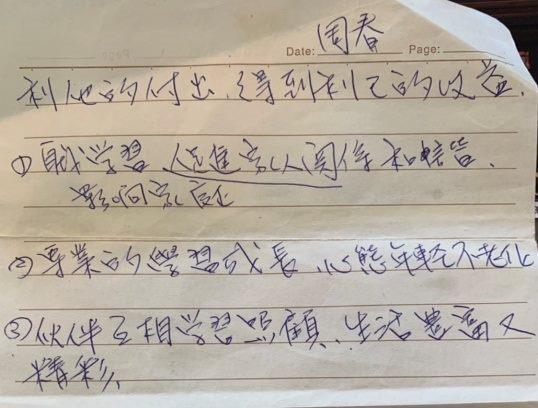 Date: 周春 Page:
利他的付出,得到利己的收益.
① 自我学習 促進家人関係和睦皆.
影响家
② 專業的學習成長,心態年輕不老化
③ 伙伴互相学習照顧、生活豊富又
精彩.